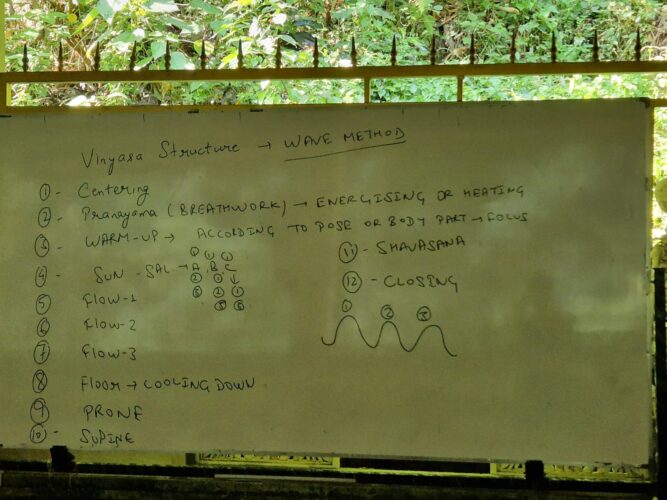 Vinyasa Structure → WAVE METHOD
① - Centering
② - Pranayama (BREATHWORK) → ENERGISING OR HEATING
③ - WARM-UP → ACCORDING TO POSE OR BODY PART → FOCUS
④ - SUN-SAL → A B C
⑤ Flow-1
⑥ Flow-2
⑦ Flow-3
⑧ Floor → COOLING DOWN
⑨ PRONE
⑩ - SUPINE
⑪ - SHAVASANA
⑫ - CLOSING
① ② ③